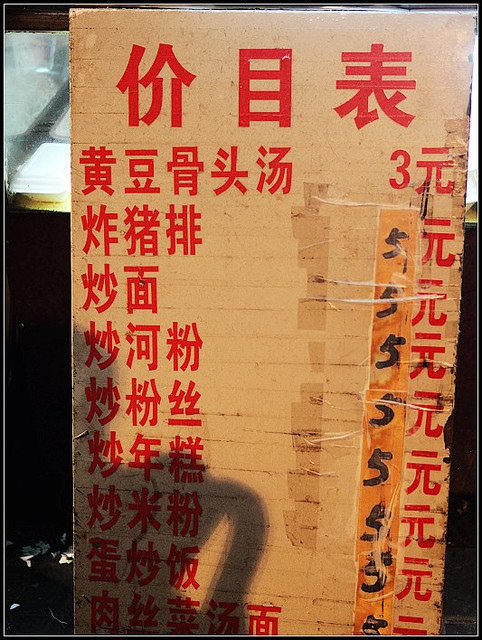 价目表
黄豆骨头汤 3元
炸猪排 5元
炒面 5元
炒河粉 5元
炒粉丝 5元
炒年糕 5元
炒米粉 5元
蛋炒饭 5元
肉丝菜汤面 5元